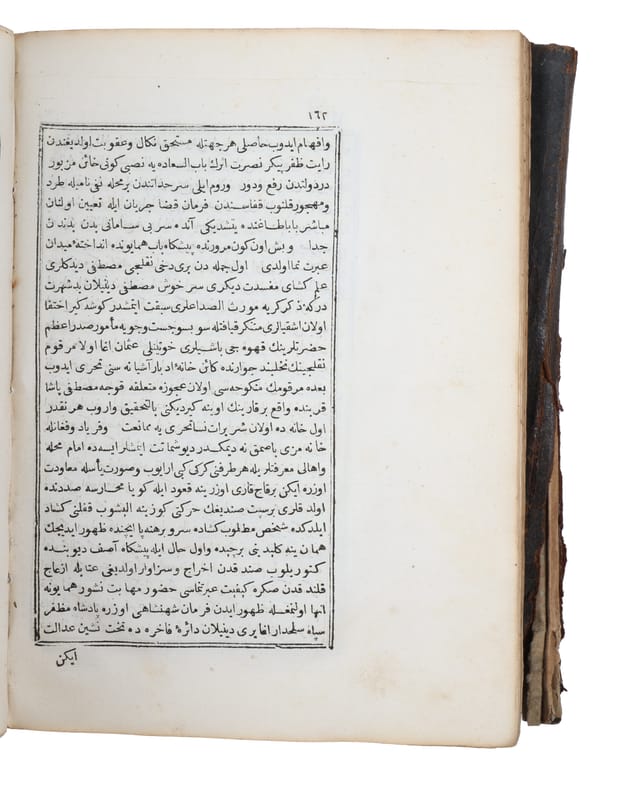 ١٦٢
وافهام ايدوب حاصلى هر جهتله مستحق نكال وعقوبت اولديغندن
رايت ظفر پيكر نصرت اثرك باب السعاده يه نصبى كونى خائن مزبور
دردولتدن رفع ودور وروم ايلى سرحداتندن بر محله نفى ناميله طرد
ومهجور قلنوب قفاسندن فرمان قضا جريان ايله تعيين اولنان
مباشر باباطاغنده يتشديكى آنده سر بى سامانى بدن بدندن
جدا وبش اون كون مرورنده پيشكاه باب همايونده انداختهٔ ميدان
عبرت نما اولدى اول جمله دن برى دخى نفلجى مصطفى ديدكلرى
علم كشاى مفسدت ديكرى سرخوش مصطفى دينيلان بد شهرت
دركه ذكر كريه مورث الصداعلرى سبقت ايتمشدر كوشه كير اختفا
اولان اشقيالرى متنكر قيافتله سو بسو جست وجويه مأمور صدر اعظم
حضرتلرينك قهوه جى باشيلرى خوتينلى عثمان اغا ولا مرقوم
نفلجينك تخلبند جوارنده كائن خانهٔ ادبار آشيانه سنى تحرى ايدوب
بعده مرقومك منكوحه سى اولان عجوزه متعلقه قوجه مصطفى پاشا
قربنده واقع بر قارينك اوينه كيرديكنى بالتحقيق واروب هر نقدر
اول خانه ده اولان شريرات نسا تحرى يه ممانعت وفرياد وفغانله
خانه مزى باصمق نه ديمكدر ديو شماتت ايتمشلر ايسه ده امام محله
واهالى معرفتلريله هر طرفنى كركى كبى ارايوب وصورت يأسله معاودت
اوزره ايكن برقاج قارى اوزرينه قعود ايله كويا محارسه صددنده
اولدقلرى بر سبت صنديغك حركتى كوزينه اليشوب قفلنى كشاد
ايلدكده شخص مطلوب كشاده سر وبرهنه پا ايچنده ظهور ايديجك
همان ينه كليدينى برچيده واول حال ايله پيشكاه آصف ديوبنده
كتوريلوب صندقدن اخراج وسزاوار اولديغى عتابله ازعاج
قلندقدن صكره كيفيت عبرتنماسى حضور مهابت نشور همايونه
انها اولنمغله ظهور ايدن فرمان شهنشاهى اوزره پادشاه مظفر
سپاه سلحدار اغا يرى دينيلان دائرهٔ فاخره ده تخت نشين عدالت
ايكن